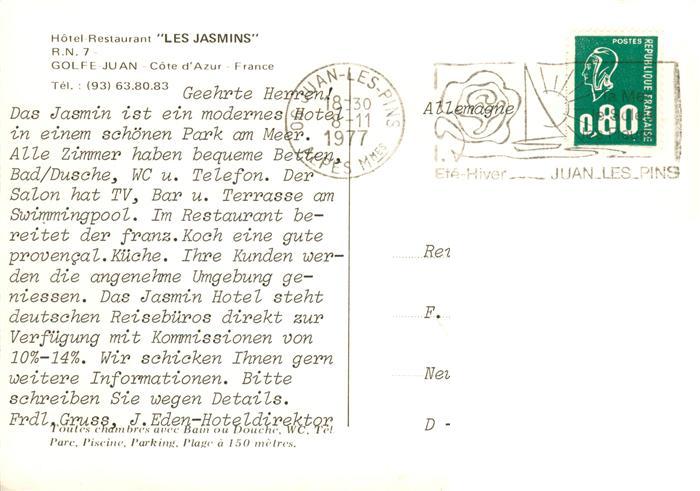 Hôtel-Restaurant "LES JASMINS"
R.N. 7 -
GOLFE-JUAN - Côte d'Azur - France
Tél. : (93) 63.80.83
Geehrte Herren!
Das Jasmin ist ein modernes Hotel
in einem schönen Park am Meer.
Alle Zimmer haben bequeme Betten,
Bad/Dusche, WC u. Telefon. Der
Salon hat TV, Bar u. Terrasse am
Swimmingpool. Im Restaurant be-
reitet der franz.Koch eine gute
provençal.Küche. Ihre Kunden wer-
den die angenehme Umgebung ge-
niessen. Das Jasmin Hotel steht
deutschen Reisebüros direkt zur
Verfügung mit Kommissionen von
10%-14%. Wir schicken Ihnen gern
weitere Informationen. Bitte
schreiben Sie wegen Details.
Frdl.Gruss, J.Eden-Hoteldirektor
Toutes chambres avec Bain ou Douche, WC, Tél
Parc, Piscine, Parking, Plage à 150 mètres.
JUAN-LES-PINS
18-30
8-11
1977
ALPES MMES
Allemagne
POSTES
REPUBLIQUE FRANÇAISE
0,80
Eté-Hiver JUAN_LES_PINS
Rei
F.
Neu
D -